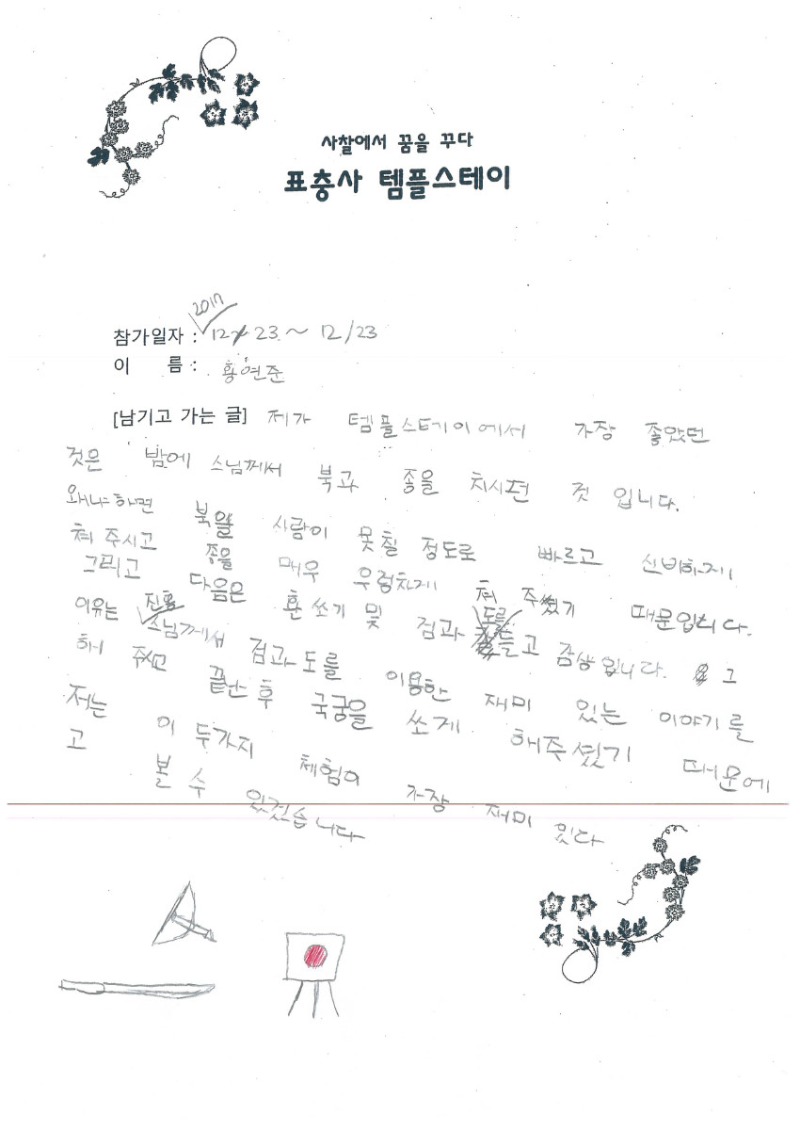 사찰에서 꿈을 꾸다
표충사 템플스테이
2017
참가일자 : 12/23 ~ 12/23
이 름 : 황연준
[남기고 가는 글] 제가 템플스테이에서 가장 좋았던
것은 밤에 스님께서 북과 종을 치시던 것 입니다.
왜냐하면 북을 사람이 못칠 정도로 빠르고 신비하게
쳐 주시고 종을 매우 우렁차게 쳐 주셨기 때문입니다.
그리고 다음은 활쏘기 및 검과 도를 들고 잠상입니다. 그
이유는 진흥 스님께서 검과 도를 이용한 재미 있는 이야기를
해 주시고 끝난 후 국궁을 쏘게 해주셨기 때문에
저는 이 두가지 체험이 가장 재미 있다
고 볼 수 있겠습니다